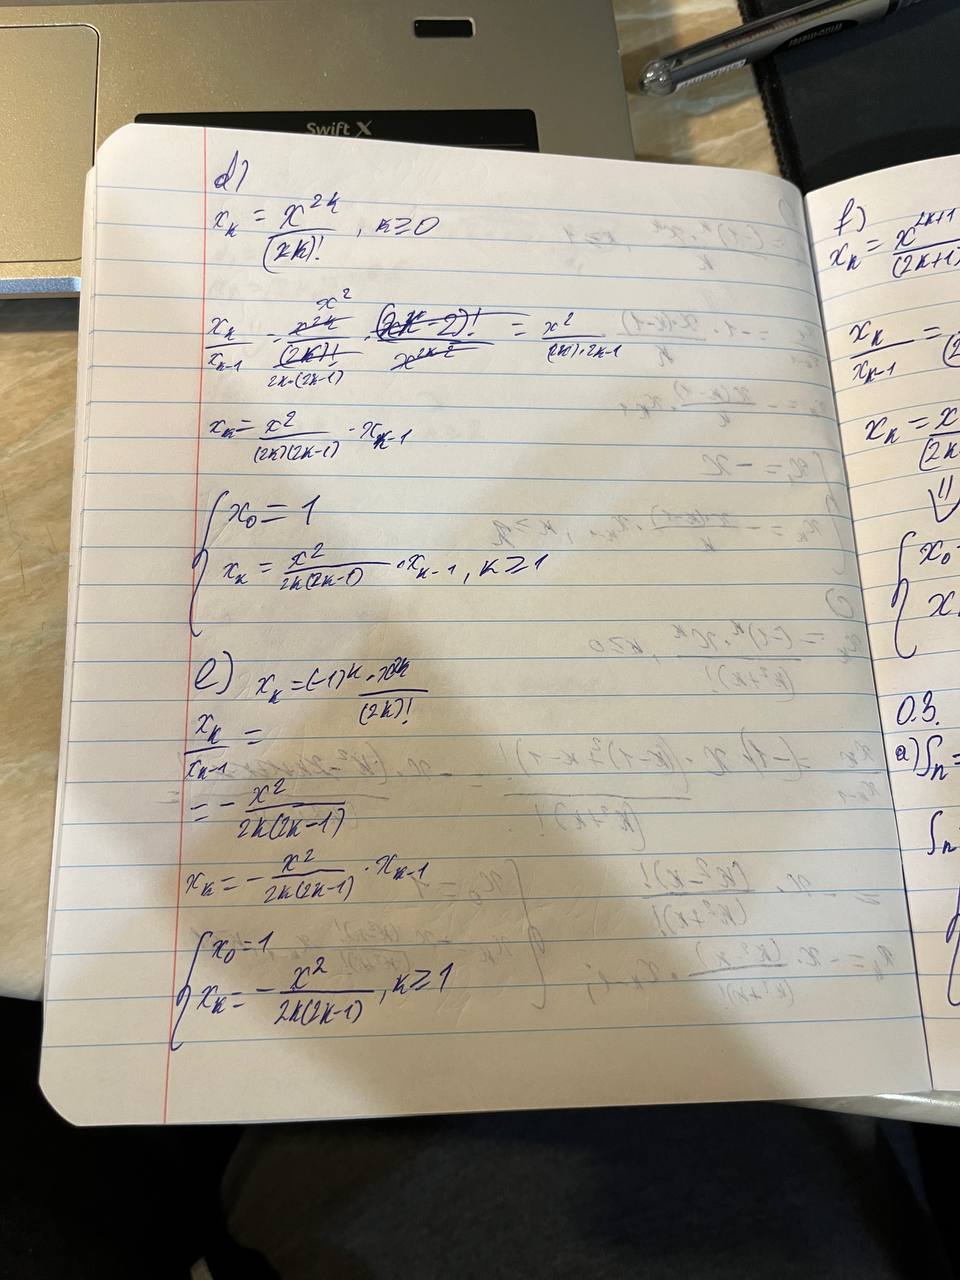 Swift X
d)
x_k = x^{2k} / (2k)! , k ≥ 0
x_k / x_{k-1} = x^{2k} / (2k)! · (2k-2)! / x^{2k-2} = x^2 / (2k)·2k-1
x^2
2k·(2k-1)
x_k = x^2 / (2k)(2k-1) · x_{k-1}
{ x_0 = 1
x_k = x^2 / 2k(2k-1) · x_{k-1} , k ≥ 1
e) x_k = (-1)^k · x^{2k} / (2k)!
x_k / x_{k-1} =
= - x^2 / 2k(2k-1)
x_k = - x^2 / 2k(2k-1) · x_{k-1}
{ x_0 = 1
x_k = - x^2 / 2k(2k-1) , k ≥ 1
f)
x_k = x^{2k+1} / (2k+1)
x_k / x_{k-1} =
x_k = x / (2k
⇓
{ x_0
x
0.3.
a) S_n =
S_n